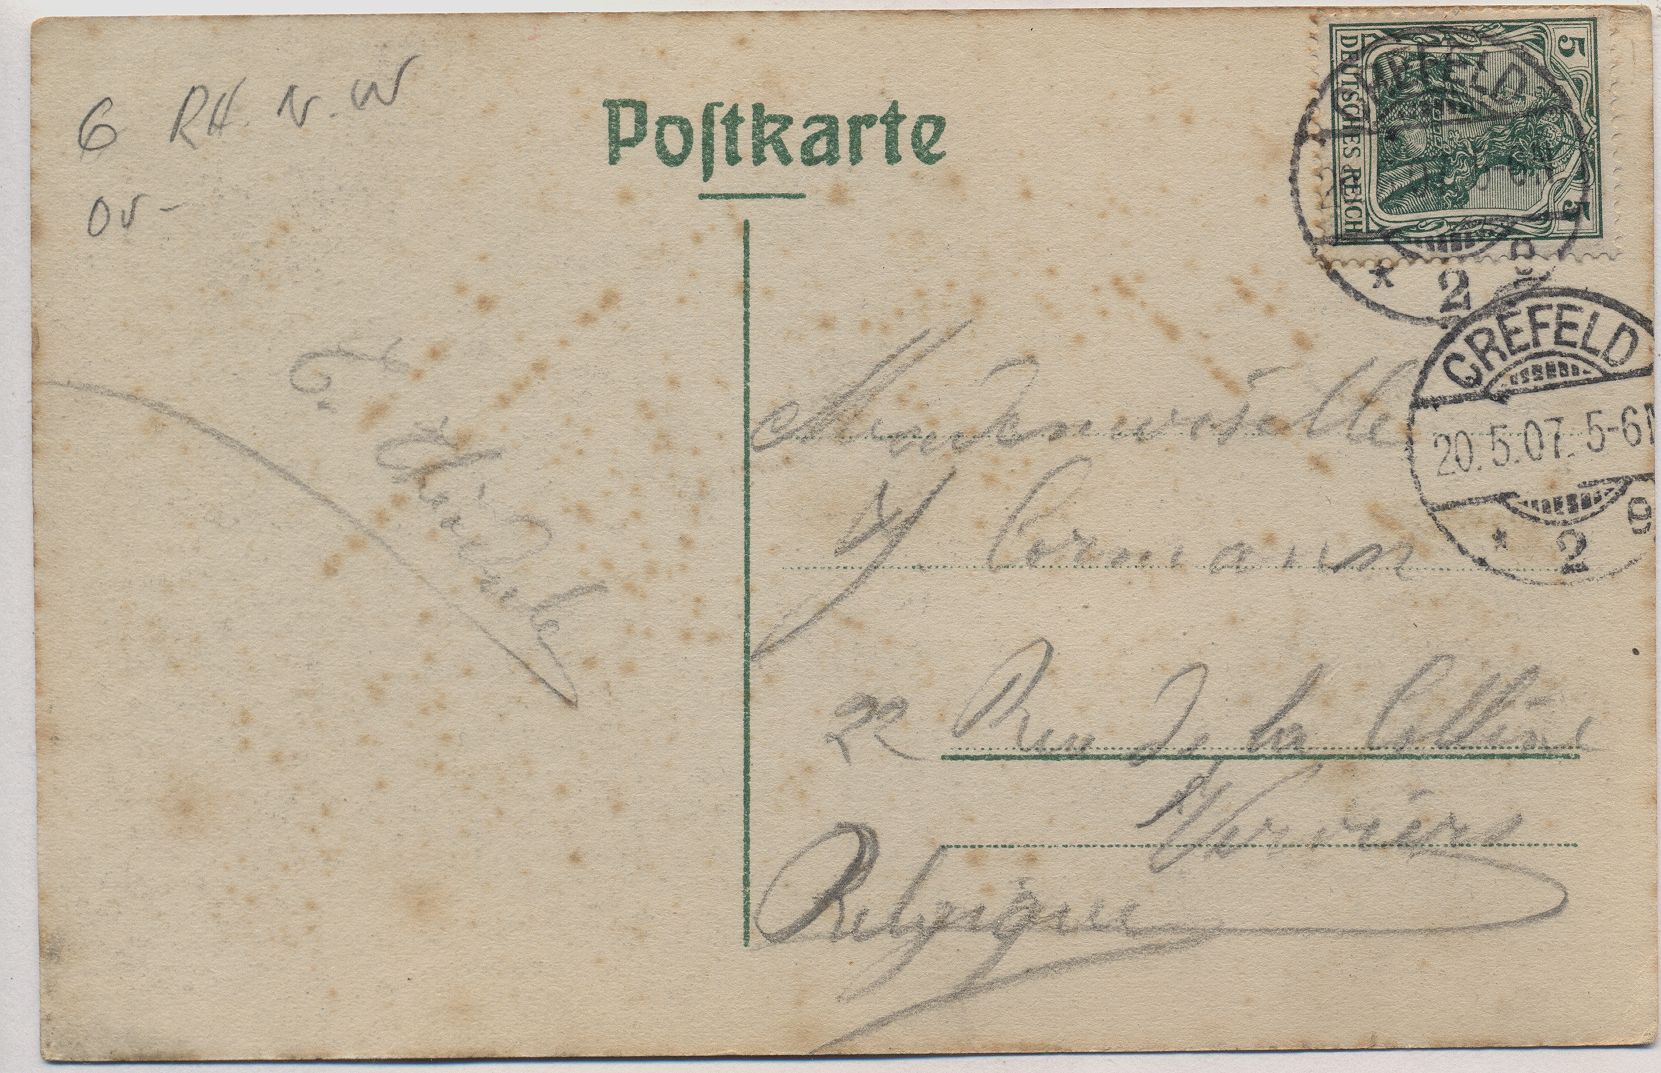 6 RH. N. W
Postkarte
DEUTSCHES REICH
5
5
CREFELD
* 2 g
CREFELD
20.5.07. 5-6N
* 2 g
Mademoiselle
Cormann
22 Rue de la Colline
Verviers
Belgique